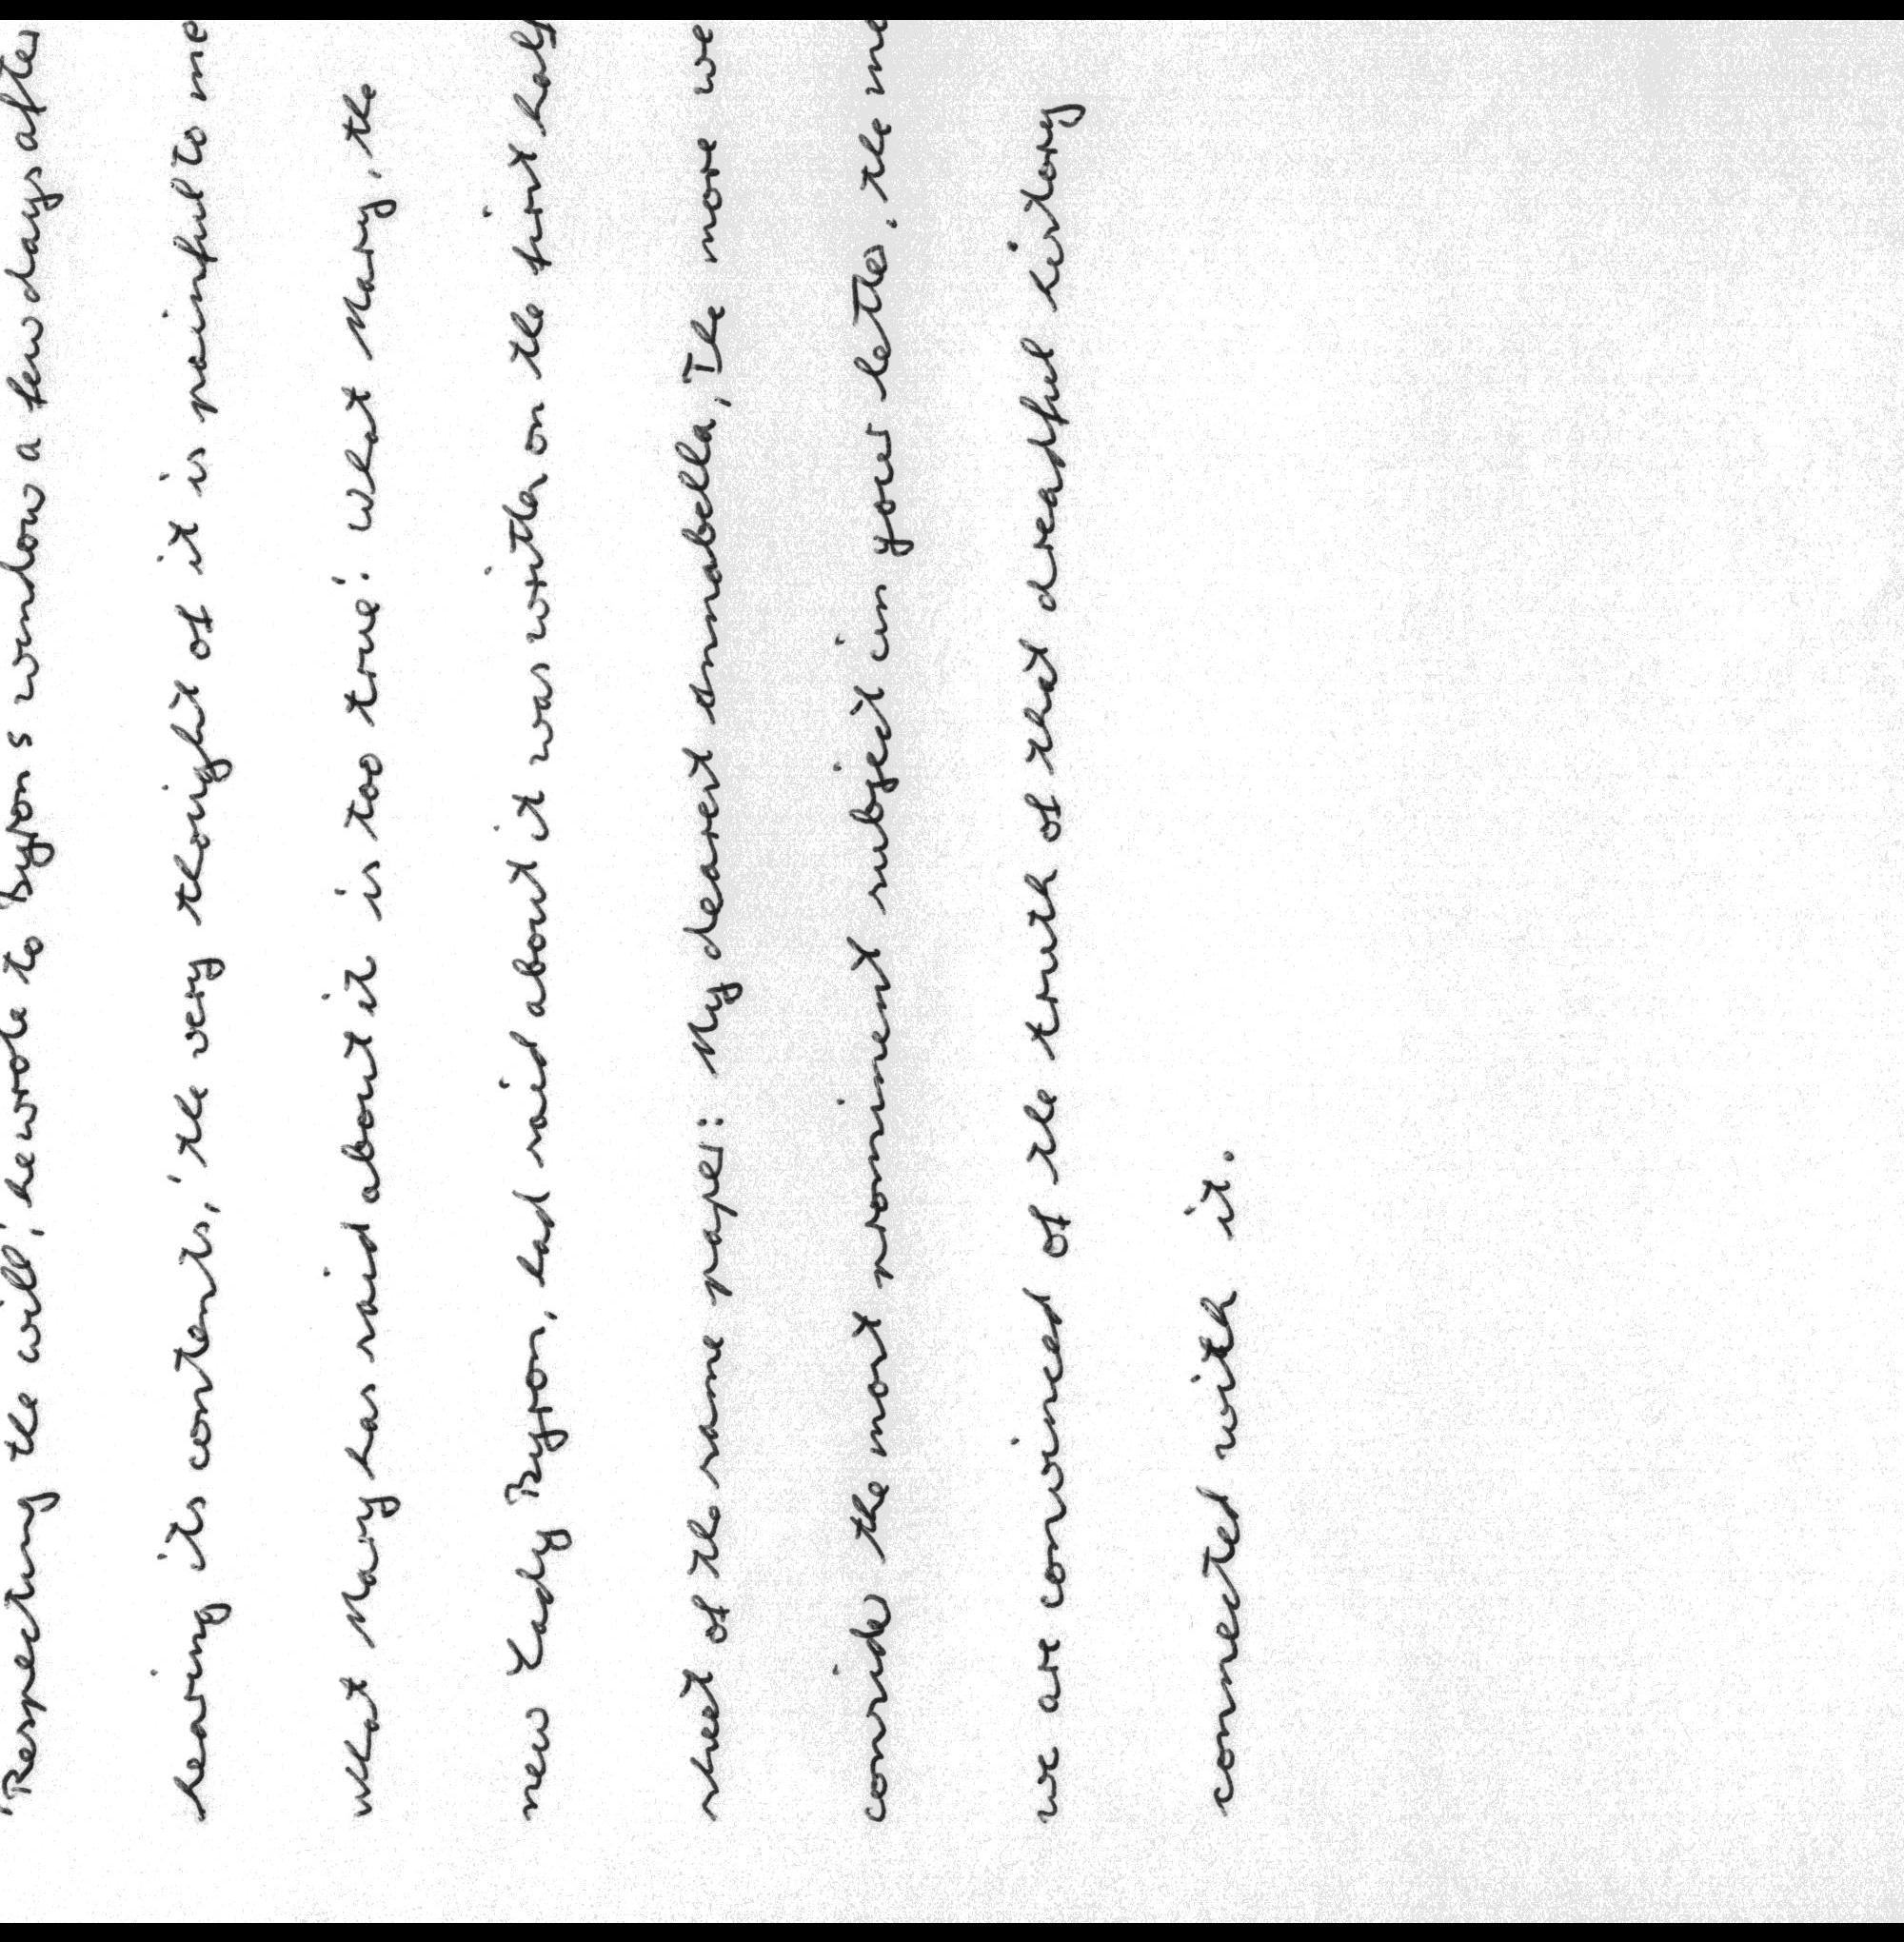 'Respecting the will,' he wrote to Byron's window a few days after
hearing its contents, 'the very thought of it is painful to me
what Mary has said about it is too true'. What Mary, the
new Lady Byron, had said about it was written on the first half
sheet of the same paper: My dearest Annabella, The more we
consider the most prominent subject in your letter, the me
we are convinced of the truth of that dreadful history
connected with it.